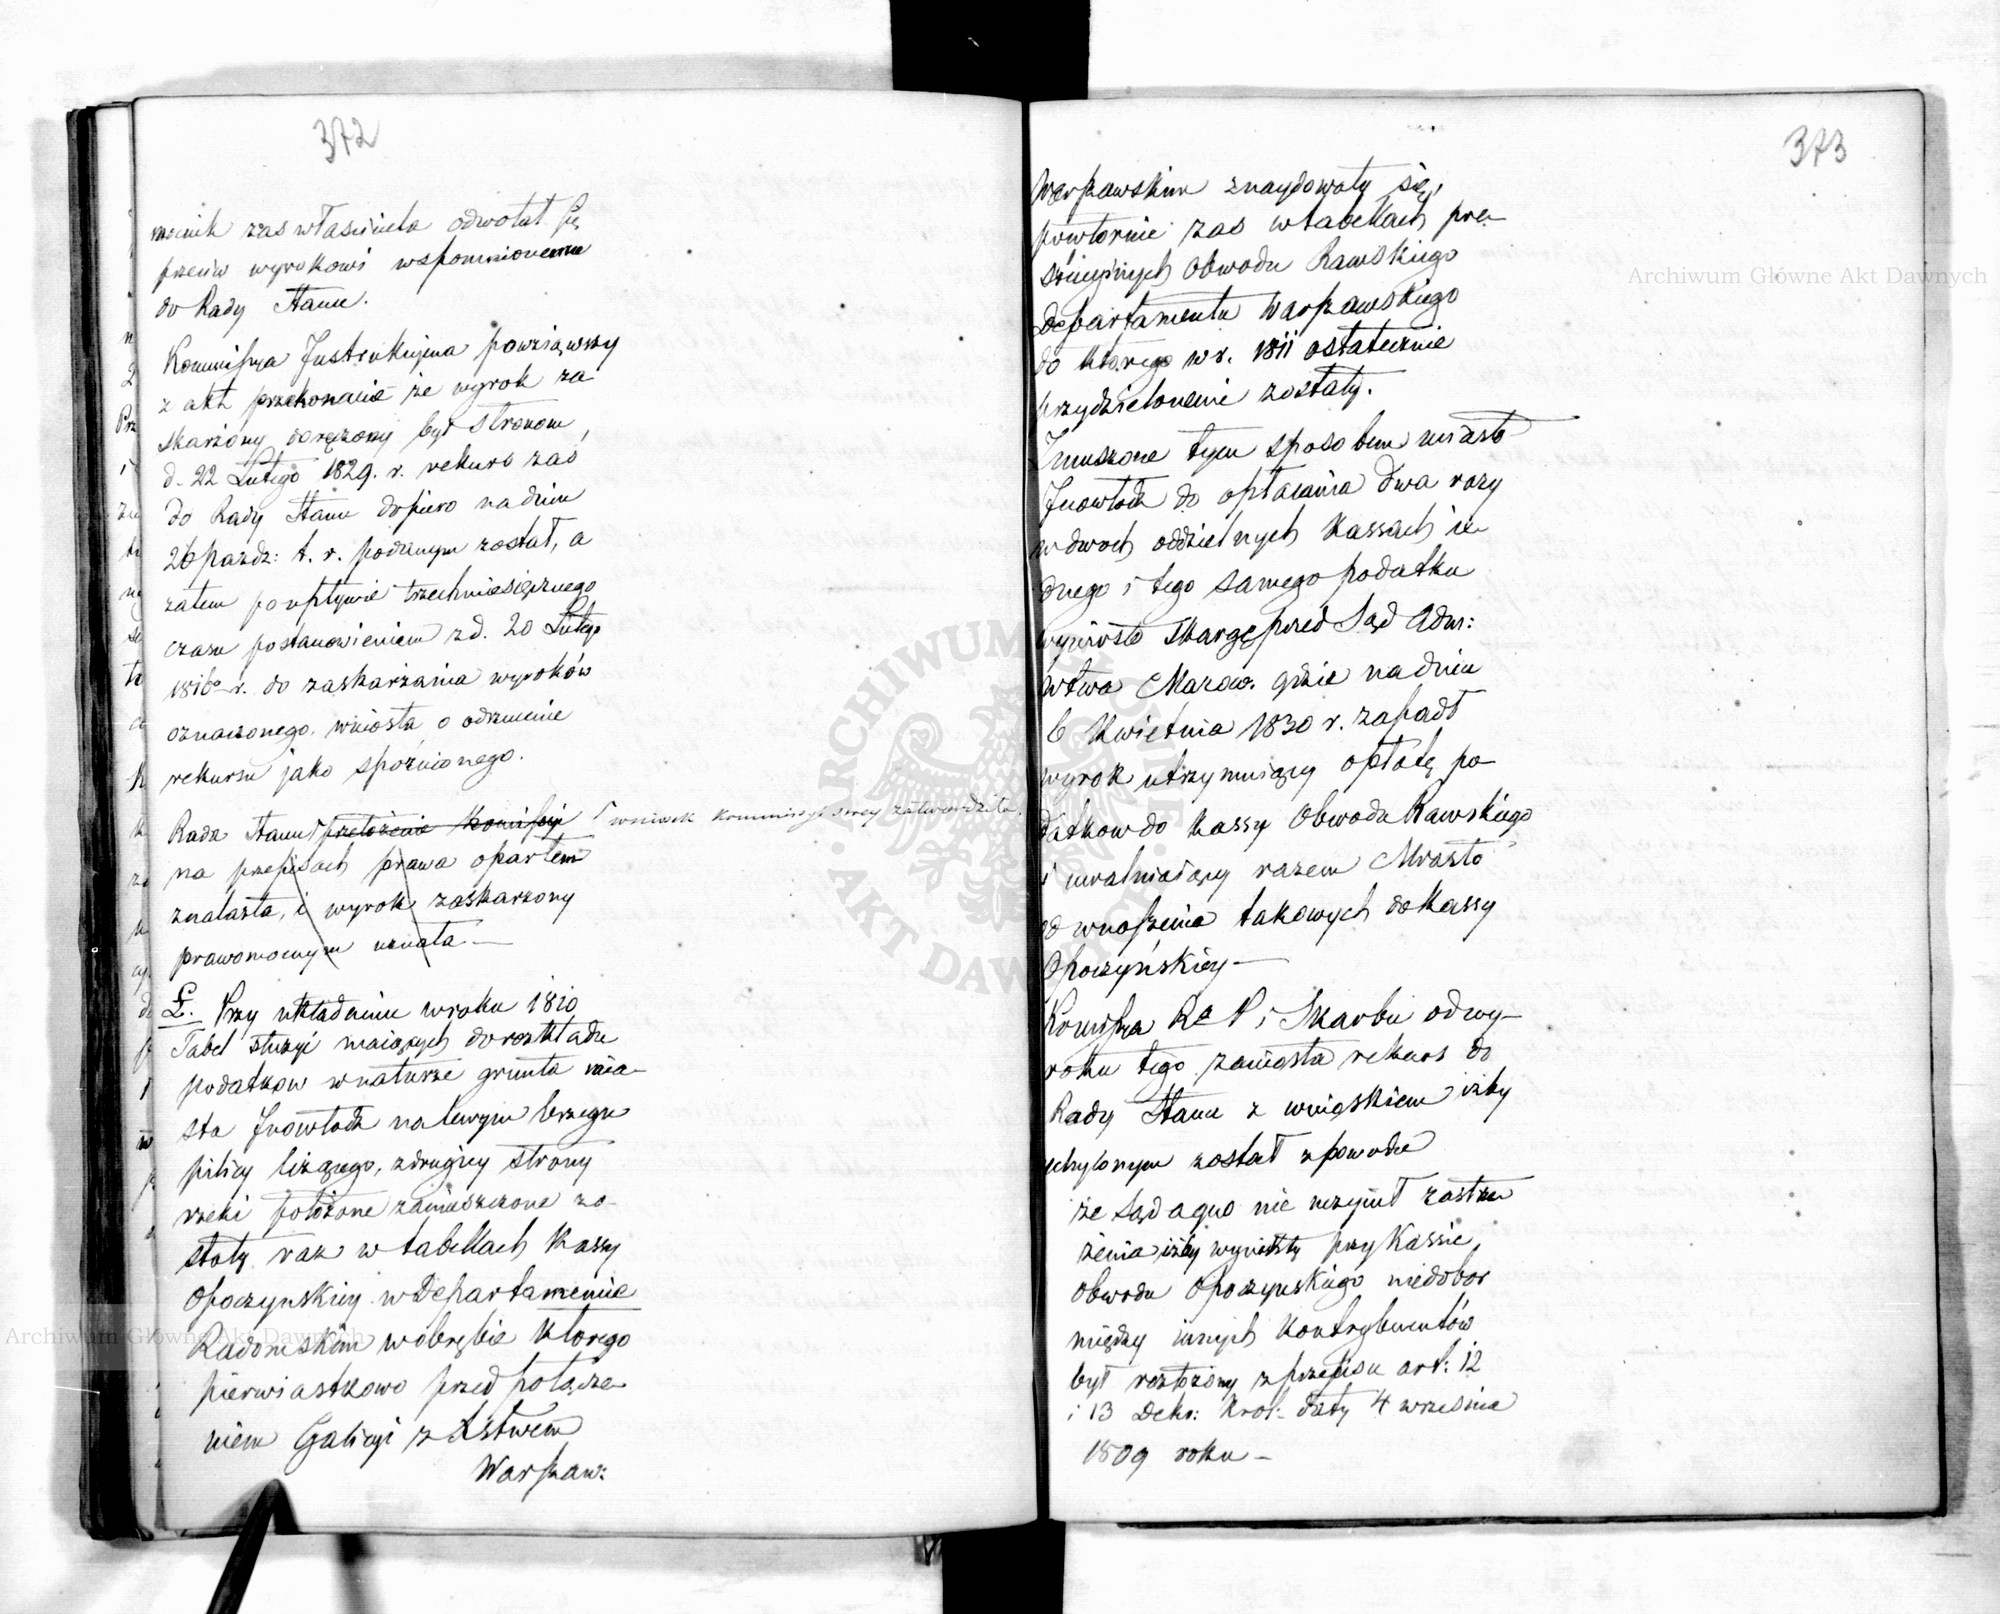 372
mocnik zas własciciela odwołał się
przeciw wyrokowi wspomnionemu
do Rady Stanu.
Kommissya Instrukcyjna powziąwszy
z akt przekonanie że wyrok za
skarżony doręczony był stronom
d. 22 Lutego 1829. r. rekurs zaś
do Rady Stanu dopiero na dniu
26 pazdz: t. r. podanym został, a
zatem po upływie trzechmiesięcznego
czasu postanowieniem z d. 20 Lutego
1816 r. do zaskarżania wyroków
oznaczonego, wniosła o odrzucenie
rekursu jako spóznionego.
Rada Stanu przełożenie Komissyi wniosek kommissyi swey zatwierdziła.
na przepisach prawa opartem
znalazła, i wyrok zaskarzony
prawomocnym uznała —
£. Przy układaniu w roku 1810
Tabel służyć maiących do rozkładu
podatkow w naturze grunta mia-
sta Inowłodz na lewym brzegu
pilicy liżącego, z drugiey strony
rzeki położone zamieszczone zo-
stały raz w tabellach Kassy
Opoczynskiey w Departamencie
Radomskim w obrębie którego
pierwiastkowo przed połącze
niem Galicyi z Xstwem
Warszaw:
373
Warszawskim znaydowały się,
powtórnie zas w tabellach pre-
Obwodu Rawskiego
Departamentu Warszawskiego
do którego w r. 1811 ostatecznie
przydzielonemi zostały.
Zmuszone tym sposobem miasto
Inowłodz do opłacania dwa razy
w dwoch oddzielnych Kassach ie
dnego i tego samego podatku
wyniosło skargę przed Sąd Adm:
wtwa Mazow. gdzie na dniu
6 Kwietnia 1830 r. zapadł
wyrok utrzymuiący opłatę po
datkow do Kassy Obwodu Rawskiego
i uwalniaiący razem Miasto
od wnoszenia takowych do Kassy
Opoczyńskiey —
Komissya R. P. i Skarbu od wy-
roku tego zaniosła rekurs do
Rady Stanu z wnioskiem iżby
uchylonym został z powodu
że Sąd a quo nie uczynił zastrze
żenia iżby wynikły przy Kassie
Obwodu Opoczynskiego niedobor
między innych kontrybuentów
był rozłożony z przepisu art: 12
i 13 Dekr: Krol: daty 4 września
1809 roku —
Archiwum Główne Akt Dawnych
Archiwum Główne Akt Dawnych
ARCHIWUM GŁÓWNE · AKT DAWNYCH ·